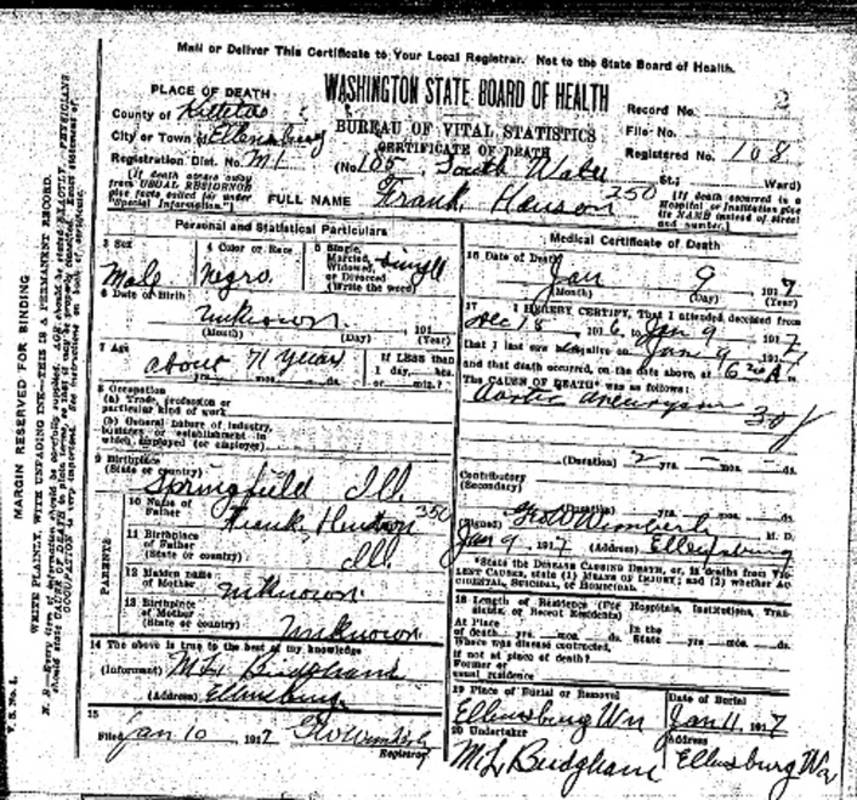 Mail or Deliver This Certificate to Your Local Registrar. Not to the State Board of Health.
WASHINGTON STATE BOARD OF HEALTH
BUREAU OF VITAL STATISTICS
CERTIFICATE OF DEATH
Record No. 2
File No.
Registered No. 108
PLACE OF DEATH
County of Kittitas
City or Town of Ellensburg
Registration Dist. No. M1
(No. 105 South Water St.; Ward)
(If death occurs away from USUAL RESIDENCE give facts called for under "Special Information.")
[If death occurred in a Hospital or Institution give its NAME instead of street and number.]
FULL NAME Frank Hanson 350
Personal and Statistical Particulars
3 Sex
Male
4 Color or Race
Negro.
5 Single, Married, Widowed, or Divorced (Write the word)
Single
6 Date of Birth
unknown. 191
(Month) (Day) (Year)
7 Age
about 71 years
yrs. mos. ds.
If LESS than 1 day, hrs. or min.?
8 Occupation
(a) Trade, profession or particular kind of work
(b) General nature of industry, business or establishment in which employed (or employer)
9 Birthplace
(State or country)
Springfield Ill.
PARENTS
10 Name of Father
Frank 350
11 Birthplace of Father
(State or country)
Ill.
12 Maiden name of Mother
unknown.
13 Birthplace of Mother
(State or country)
Unknown.
14 The above is true to the best of my knowledge
(Informant) M.L.
(Address) Ellensburg
15
Filed Jan 10, 1917
Registrar
Medical Certificate of Death
16 Date of Death
Jan 9 1917
(Month) (Day) (Year)
17 I HEREBY CERTIFY, That I attended deceased from
Dec 18, 1916, to Jan 9 1917
that I last saw alive on Jan 9 1917
and that death occurred, on the date above, at 6 A m.
The CAUSE OF DEATH* was as follows:
Aortic aneurysm
(Duration) 2 yrs. mos. ds.
Contributory
(Secondary)
(Duration) yrs. mos. ds.
(Signed) M. D.
Jan 9 1917 (Address) Ellensburg
*State the DISEASE CAUSING DEATH, or, in deaths from VIOLENT CAUSES, state (1) MEANS OF INJURY; and (2) whether ACCIDENTAL, SUICIDAL, or HOMICIDAL.
18 Length of Residence (For Hospitals, Institutions, Transients, or Recent Residents)
At Place of death yrs. mos. ds.
In the State yrs. mos. ds.
Where was disease contracted,
if not at place of death?
Former or usual residence
19 Place of Burial or Removal
Ellensburg Wn
Date of Burial
Jan 11, 1917
20 Undertaker
M.L.
Address
Ellensburg Wn
MARGIN RESERVED FOR BINDING
WRITE PLAINLY, WITH UNFADING INK—THIS IS A PERMANENT RECORD.
V. S. No. 1.